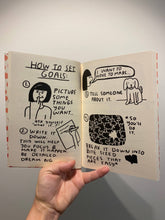 HOW TO SET
GOALS:
① PICTURE
SOME
THINGS
YOU
WANT.
② WRITE IT
DOWN.
THIS WILL HELP
YOU FOCUS &
MAKE IT HAPPEN.
BE DETAILED
DREAM BIG
I WANT TO
LOVE TO MAKE...
③ TELL SOMEONE
ABOUT IT.
④
SO YOU'LL
DO IT.
BREAK IT DOWN INTO
BITE SIZED
PIECES THAT
ARE